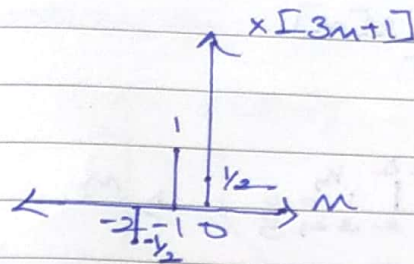 x[3n+1]
1
1/2
n
-2 -1 0
-1/2